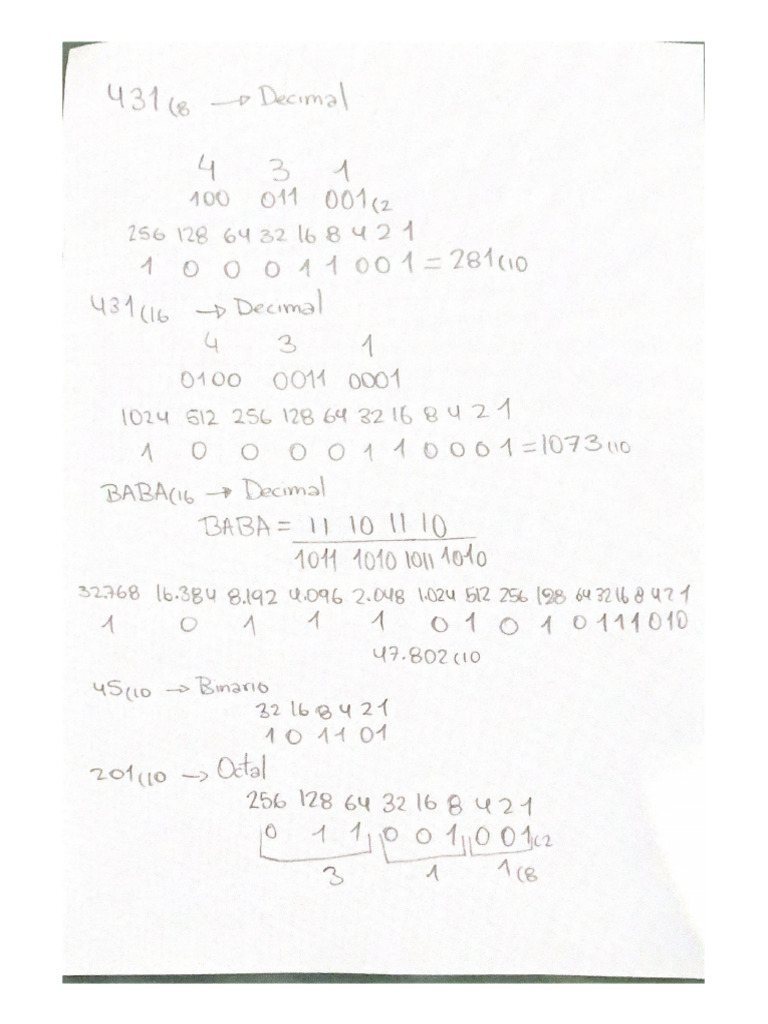 431(8 → Decimal
4 3 1
100 011 001(2
256 128 64 32 16 8 4 2 1
1 0 0 0 1 1 0 0 1 = 281(10
431(16 → Decimal
4 3 1
0100 0011 0001
1024 512 256 128 64 32 16 8 4 2 1
1 0 0 0 0 1 1 0 0 0 1 = 1073(10
BABA(16 → Decimal
BABA = 11 10 11 10
1011 1010 1011 1010
32.768 16.384 8.192 4.096 2.048 1.024 512 256 128 64 32 16 8 4 2 1
1 0 1 1 1 0 1 0 1 0 1 1 1 0 1 0
47.802(10
45(10 → Binario
32 16 8 4 2 1
1 0 1 1 0 1
201(10 → Octal
256 128 64 32 16 8 4 2 1
0 1 1 0 0 1 0 0 1(2
3 1 1(8